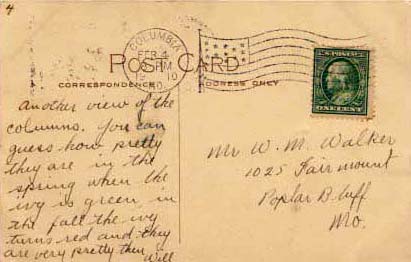 4
COLUMBIA
FEB 4
PM
10
MO.
POST CARD
CORRESPONDENCE
ADDRESS ONLY
U.S. POSTAGE
ONE CENT
Another view of the
columns. You can
guess how pretty
they are in the
spring when the
ivy is green, in
the fall the ivy
turns red and they
are very pretty then
Will
Mr W. M. Walker
1025 Fairmount
Poplar Bluff
Mo.